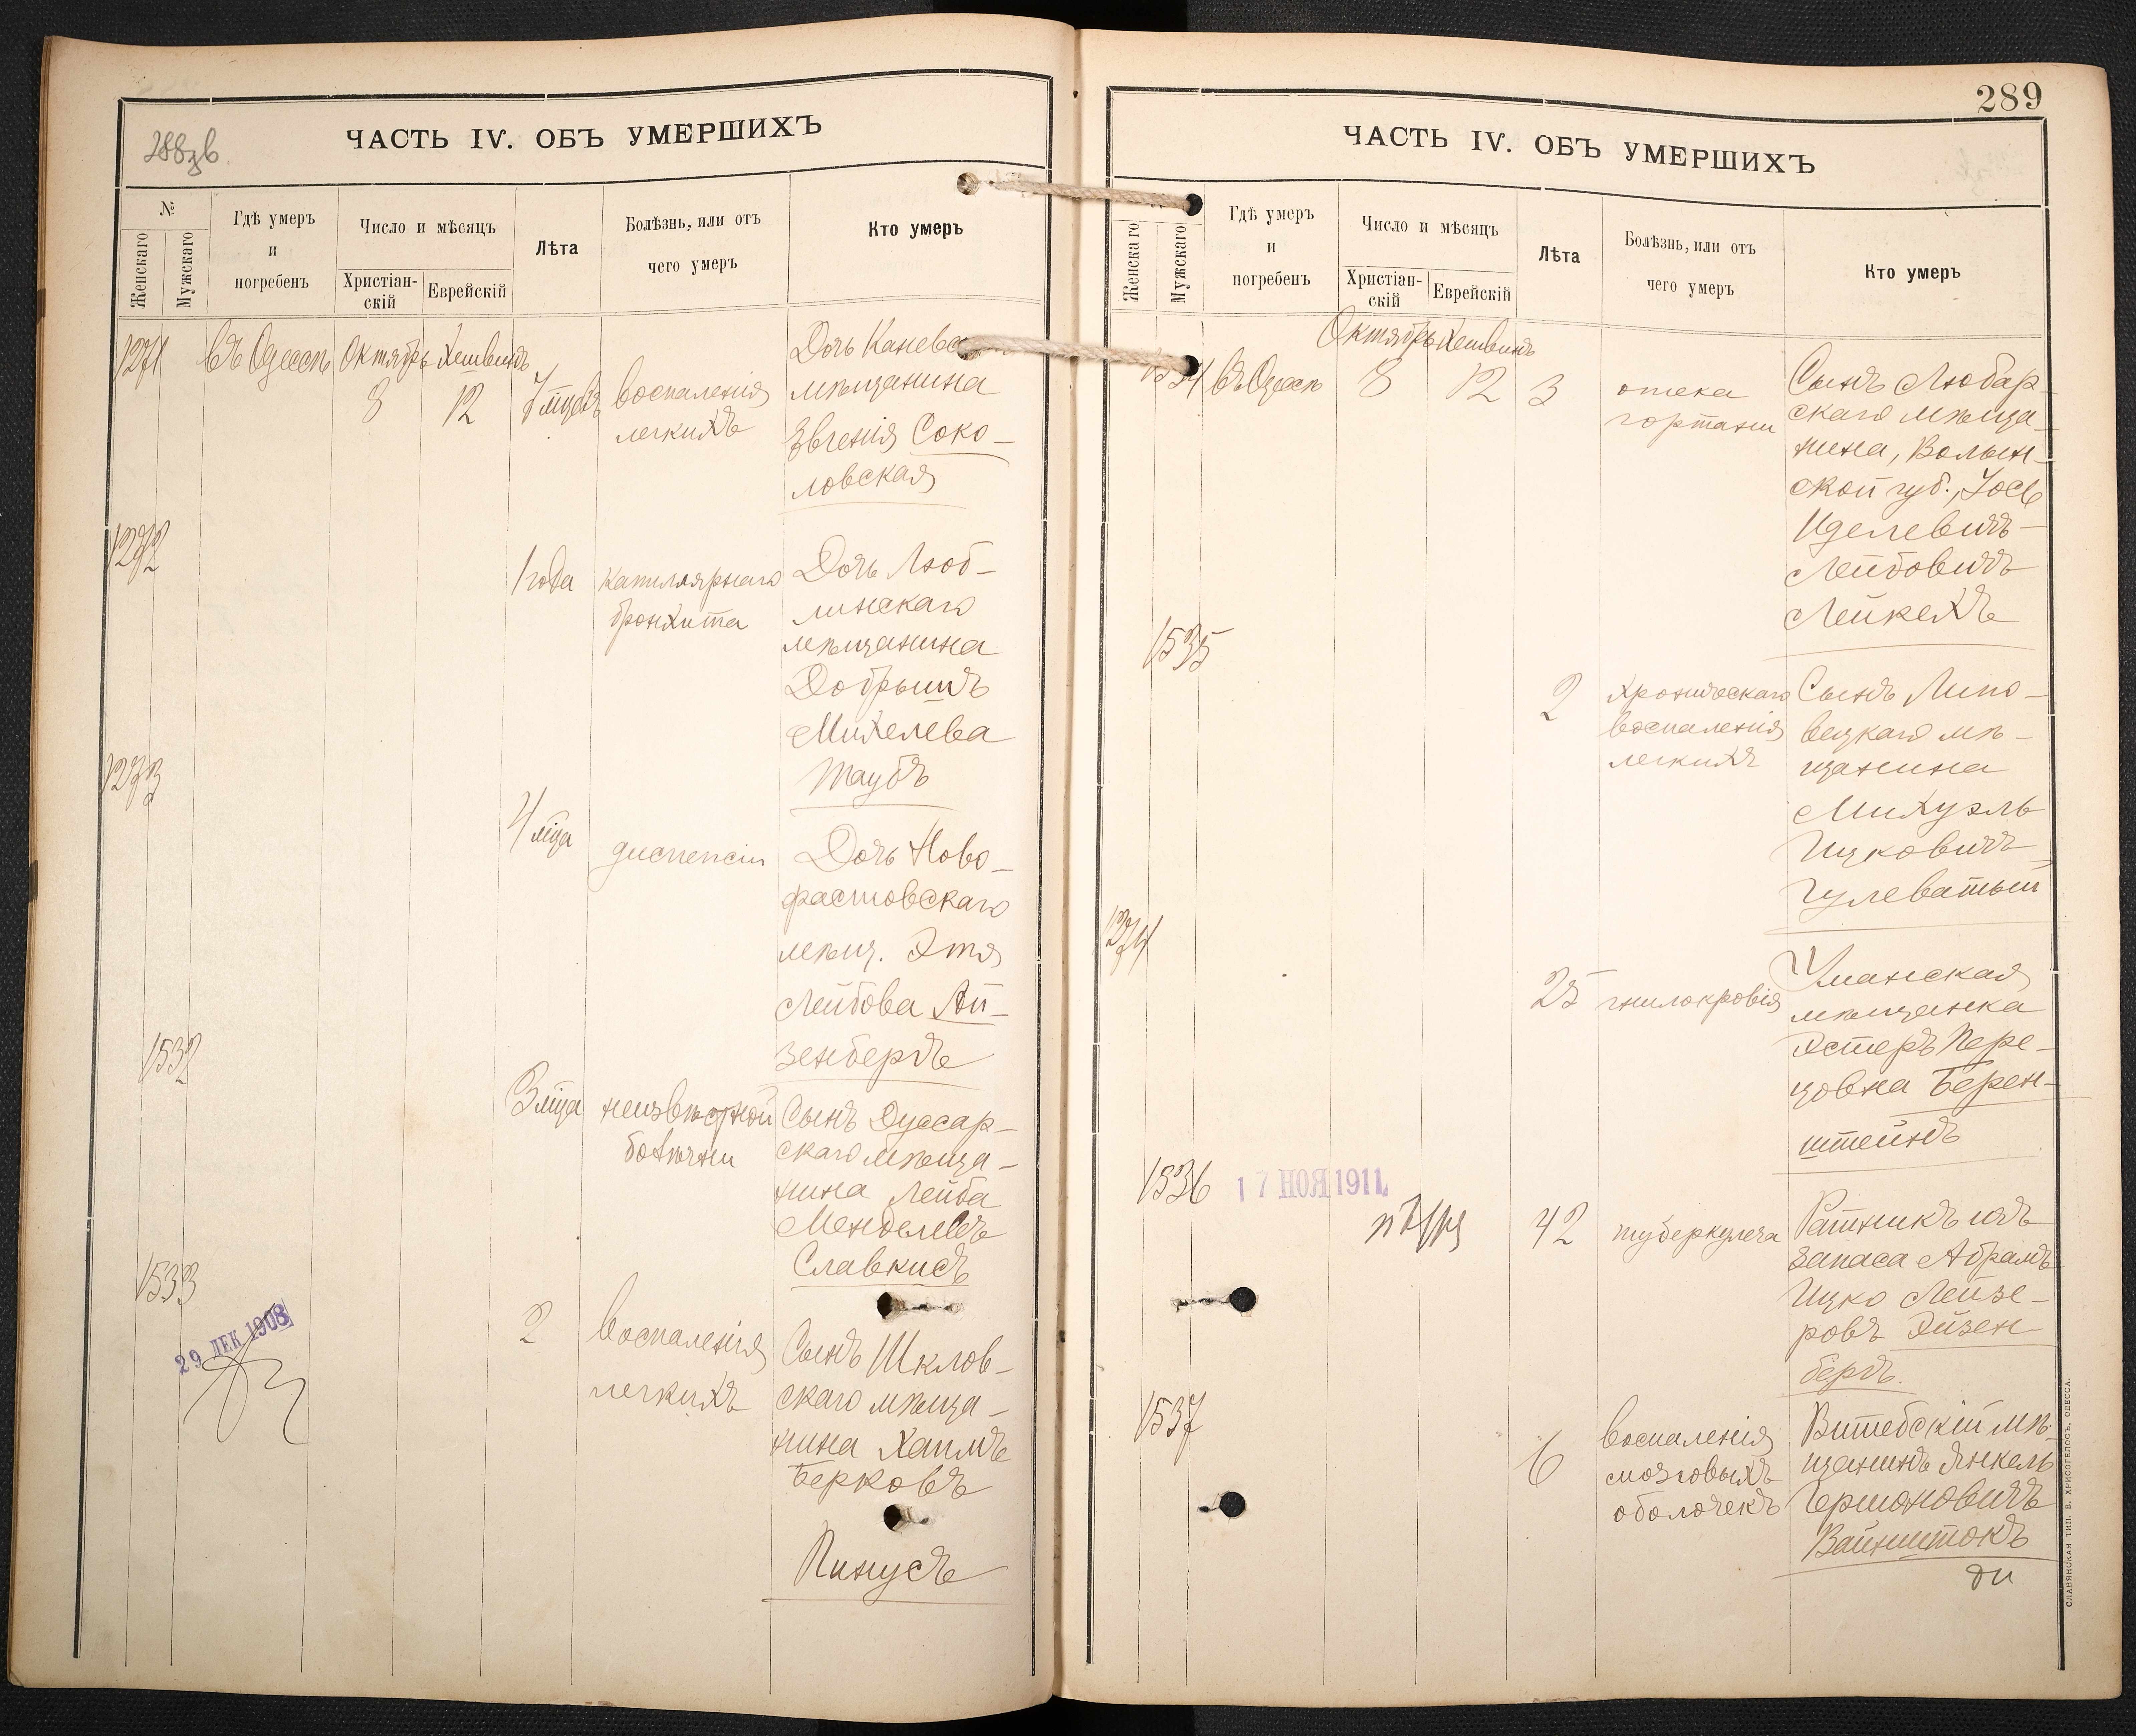 288зв.
ЧАСТЬ IV. ОБЪ УМЕРШИХЪ
№
Женскаго
Мужскаго
Гдѣ умеръ
и
погребенъ
Число и мѣсяцъ
Христіан-
скій
Еврейскій
Лѣта
Болѣзнь, или отъ
чего умеръ
Кто умеръ
1271
въ Одессѣ
Октябрь
8
Хешвинъ
12
7 мцевъ
воспаленія
легкихъ
Дочь Каневс
мѣщанина
Евгенія Соко-
ловская
1272
1 года
капиллярнаго
бронхита
Дочь Люб-
линскаго
мѣщанина
Добрышъ
Михелева
Таубъ
1273
4 мца
диспепсіи
Дочь Ново-
фастовскаго
мѣщ. Этя
Лейбова Ай-
зенбергъ
1532
3 мца
неизвѣстной
болѣзни
Сынъ Дуссар-
скаго мѣща-
нина Лейба
Менделевъ
Славкисъ
1533
29 ДЕК 1908
2
воспаленія
легкихъ
Сынъ Шклов-
скаго мѣща-
нина Хаимъ
Берковъ
Пинусъ
289
ЧАСТЬ IV. ОБЪ УМЕРШИХЪ
Женскаго
Мужскаго
Гдѣ умеръ
и
погребенъ
Число и мѣсяцъ
Христіан-
скій
Еврейскій
Лѣта
Болѣзнь, или отъ
чего умеръ
Кто умеръ
1534
въ Одессѣ
Октябрь
8
Хешвинъ
12
3
отека
гортани
Сынъ Любар-
скаго мѣща-
нина, Волын-
ской губ., Іось
Иделевичъ-
Лейбовичъ
Лейкехъ
1535
2
хроническаго
воспаленія
легкихъ
Сынъ Липо-
вецкаго мѣ-
щанина
Михуэль
Ицковичъ
Гулеватый
1274
25
гнилокровія
Уманская
мѣщанка
Эстеръ Пере-
цовна Берен-
штейнъ
1536
17 НОЯ 1911
42
туберкулеза
Ратникъ изъ
запаса Абрамъ
Ицко Лейзе-
ровъ Айзен-
бергъ.
1537
6
воспаленія
мозговыхъ
оболочекъ
Витебскій мѣ-
щанинъ Янкель
Гершоновичъ
Вайнштокъ
СЛАВЯНСКАЯ ТИП. Е. ХРИСОГЕЛОСЪ, ОДЕССА.